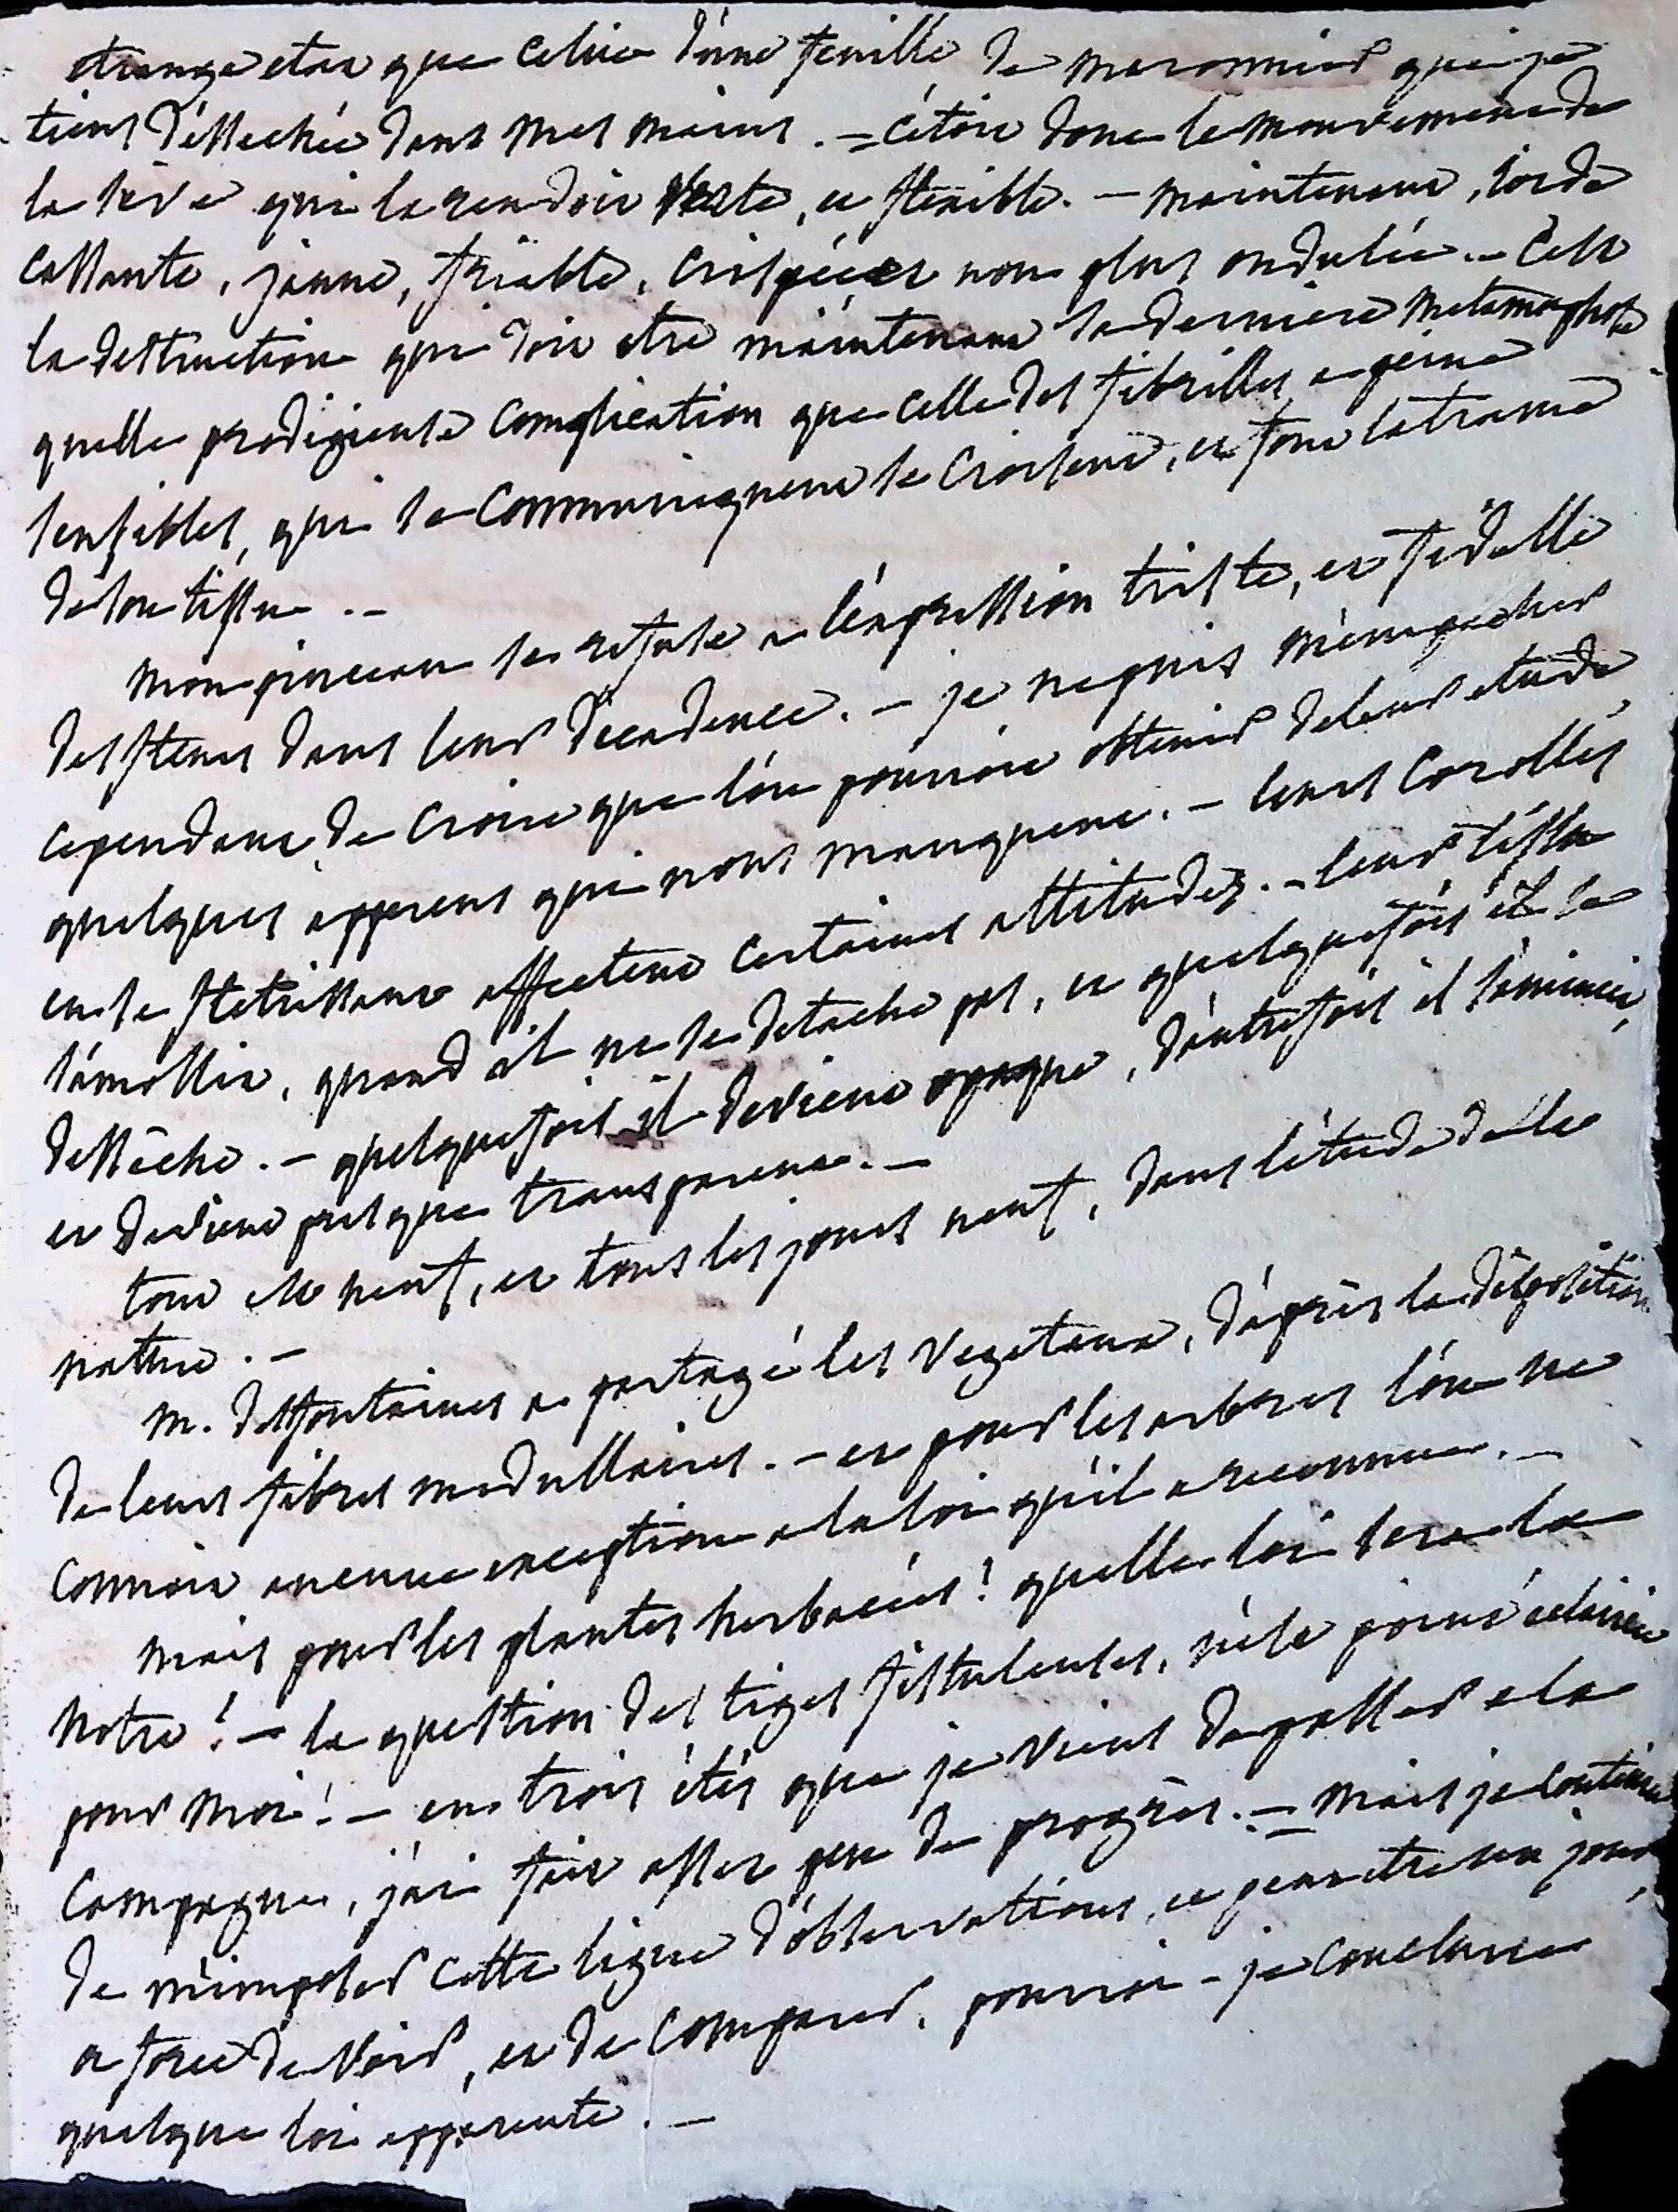 etrange etat que celui d'une feuille de maronnier que je
tiens desséchée dans mes mains. = c'étoit donc le mouvement de
la séve qui la rendoit verte, et flexible. - maintenant, roide
cassante, jaune, friable, crispée et non plus ondulée. - C'est
la destruction qui doit etre maintenant sa derniere metamorphose
quelle prodigieuse complication que celle des fibrilles a peine
sensibles, qui se communiquent se croisent, et font la trame
de son tissu. -
mon pinceau se refuse a l'expression triste, et fidelle
des fleurs dans leur décadence. - je ne puis m'empecher
cependant de croire que l'on pourroit obtenir de leur etude
quelques apperçus qui nous manquent. - leurs corolles
en se fletrissant affectent certaines attitudes. - leur tissu
s'amollit, quand il ne se detache pas, et quelquefois il se
dessèche. - quelquefois il devient opaque, d'autrefois il s'amincit,
et devient presque transparent. -
tout est neuf, et tous les jours neuf, dans l'étude de la
nature. -
M. desfontaines a partagé les vegetaux, d'après la disposition
de leurs fibres medullaires. - et pour les arbres l'on ne
connoit aucune exception a la loi qu'il a reconnue. -
mais pour les plantes herbacées! quelle loi sera la
notre! - la question des tiges fistuleuses, n'est point éclaircie
pour moi! - en trois étés que je viens de passer a la
campagne, j'ai fait assez peu de progrès. = mais je continue
de m'imposer cette ligne d'observations, et peut etre un jour,
a force de voir, et de comparer, pourrai-je conclure
quelque loi apparente. -